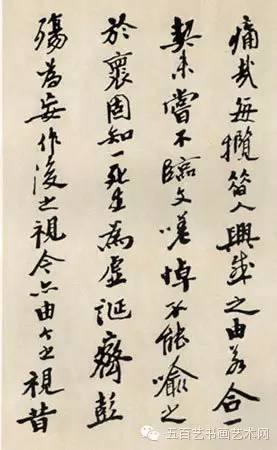 痛哉每攬昔人興感之由若合一
契未嘗不臨文嗟悼不能喻之
於懷固知一死生為虛誕齊彭
殤為妄作後之視今亦由今之視昔
五百艺书画艺术网